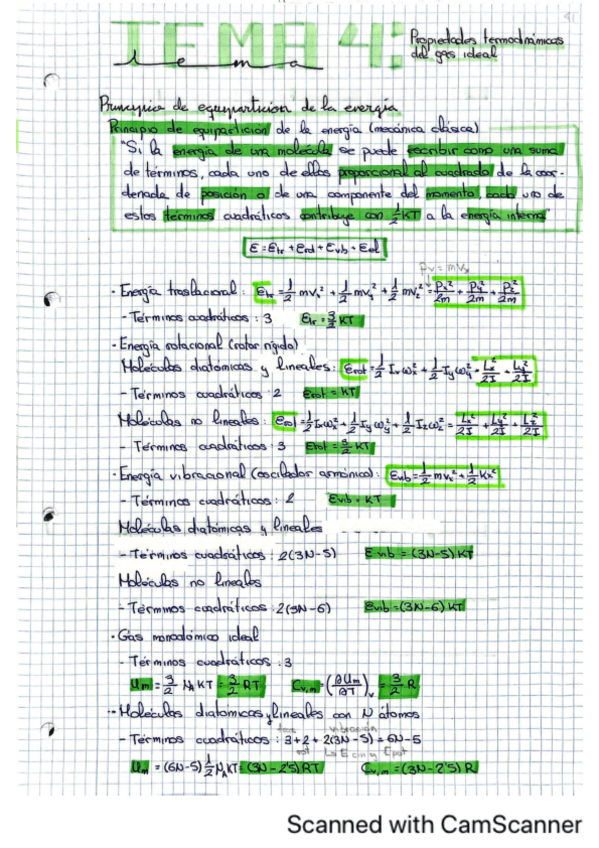 TEMA 4:
Tema
Propiedades termodinámicas
del gas ideal
Principio de equiparticion de la energía
Principio de equiparticion de la energía (mecánica clásica)
"Si la energía de una molécula se puede escribir como una suma
de términos, cada uno de ellos proporcional al cuadrado de la coor-
denada de posición o de una componente del momento, cada uno de
estos términos cuadráticos contribuye con 1/2 KT a la energía interna"
E = Etr + Erot + Evib + Eel
Pv = mVx
· Energía traslacional: Etr = 1/2 mvx² + 1/2 mvy² + 1/2 mvz² = Px²/2m + Py²/2m + Pz²/2m
- Términos cuadráticos: 3 Etr = 3/2 KT
· Energía rotacional (rotor rígido)
Moléculas diatómicas y lineales: Erot = 1/2 Ix ωx² + 1/2 Iy ωy² = Lx²/2I + Ly²/2I
- Términos cuadráticos: 2 Erot = KT
Moléculas no lineales: Erot = 1/2 Ix ωx² + 1/2 Iy ωy² + 1/2 Iz ωz² = Lx²/2I + Ly²/2I + Lz²/2I
- Términos cuadráticos: 3 Erot = 3/2 KT
· Energía vibracional (oscilador armónico): Evib = 1/2 mvx² + 1/2 Kx²
- Términos cuadráticos: 2 Evib = KT
Moléculas diatómicas y lineales
- Términos cuadráticos: 2(3N-5) Evib = (3N-5) KT
Moléculas no lineales
- Términos cuadráticos: 2(3N-6) Evib = (3N-6) KT
· Gas monoatómico ideal
- Términos cuadráticos: 3
Um = 3/2 NA KT = 3/2 RT Cv,m = (∂Um/∂T)v = 3/2 R
· Moléculas diatomicas y lineales con N átomos
vibración
- Términos cuadráticos: 3+2+2(3N-5) = 6N-5
rot Ecin y Epot
Um = (6N-5) 1/2 NA KT = (3N-2'5) RT Cv,m = (3N-2'5) R
Scanned with CamScanner